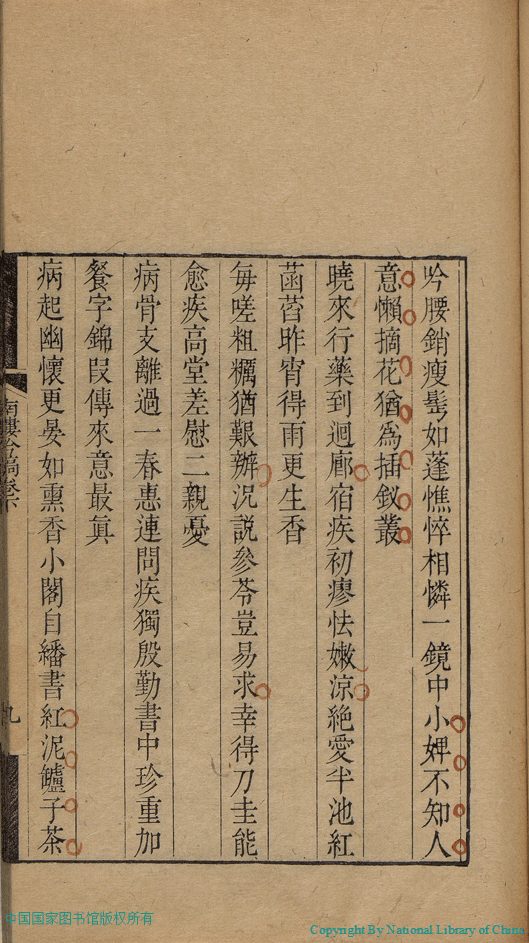 吟腰銷瘦髩如蓬憔悴相憐一鏡中小婢不知人
意懶摘花猶爲插釵叢
曉來行藥到迴廊宿疾初瘳怯嫩涼絕愛半池紅
菡萏昨宵得雨更生香
每嗟粗糲猶艱辦況說參苓豈易求幸得刀圭能
愈疾高堂差慰二親憂
病骨支離過一春惠連問疾獨殷勤書中珍重加
餐字錦段傳來意最眞
病起幽懷更晏如熏香小閣自繙書紅泥鑪子茶
九
中国国家图书馆版权所有
Copyright By National Library of China